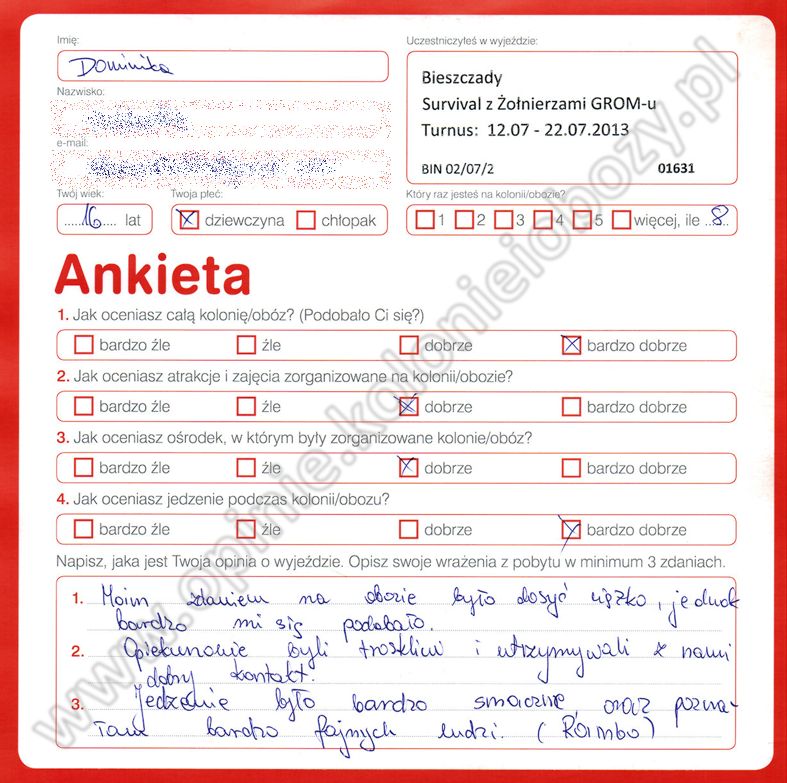 Imię:
Uczestniczyłeś w wyjeździe:
Dominika
Bieszczady
Survival z Żołnierzami GROM-u
Turnus: 12.07 - 22.07.2013
BIN 02/07/2 01631
Nazwisko:
e-mail:
Twój wiek: Twoja płeć: Który raz jesteś na kolonii/obozie?
16 lat dziewczyna chłopak 1 2 3 4 5 więcej, ile 8
Ankieta
1. Jak oceniasz całą kolonię/obóz? (Podobało Ci się?)
bardzo źle źle dobrze bardzo dobrze
2. Jak oceniasz atrakcje i zajęcia zorganizowane na kolonii/obozie?
bardzo źle źle dobrze bardzo dobrze
3. Jak oceniasz ośrodek, w którym były zorganizowane kolonie/obóz?
bardzo źle źle dobrze bardzo dobrze
4. Jak oceniasz jedzenie podczas kolonii/obozu?
bardzo źle źle dobrze bardzo dobrze
Napisz, jaka jest Twoja opinia o wyjeździe. Opisz swoje wrażenia z pobytu w minimum 3 zdaniach.
1. Moim zdaniem na obozie było dosyć ciężko, jednak
bardzo mi się podobało.
2. Opiekunowie byli troskliwi i utrzymywali z nami
dobry kontakt.
3. Jedzenie było bardzo smaczne, oraz pozna-
łam bardzo fajnych ludzi. (Raimbo)
www.opinie.kolonieiobozy.pl